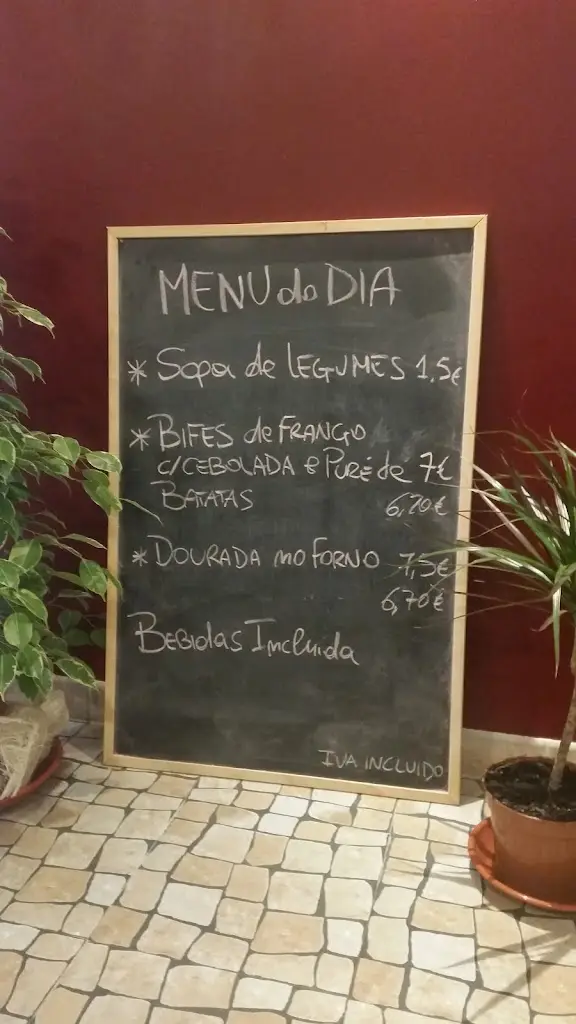 MENU do DIA
* Sopa de LEGUMES 1,5€
* BIFES de FRANGO
C/CEBOLADA e PURÉ de 7€
BATATAS 6,20€
* DOURADA no FORNO 7,5€
6,70€
BEBIDAS Incluida
IVA INCLUIDO